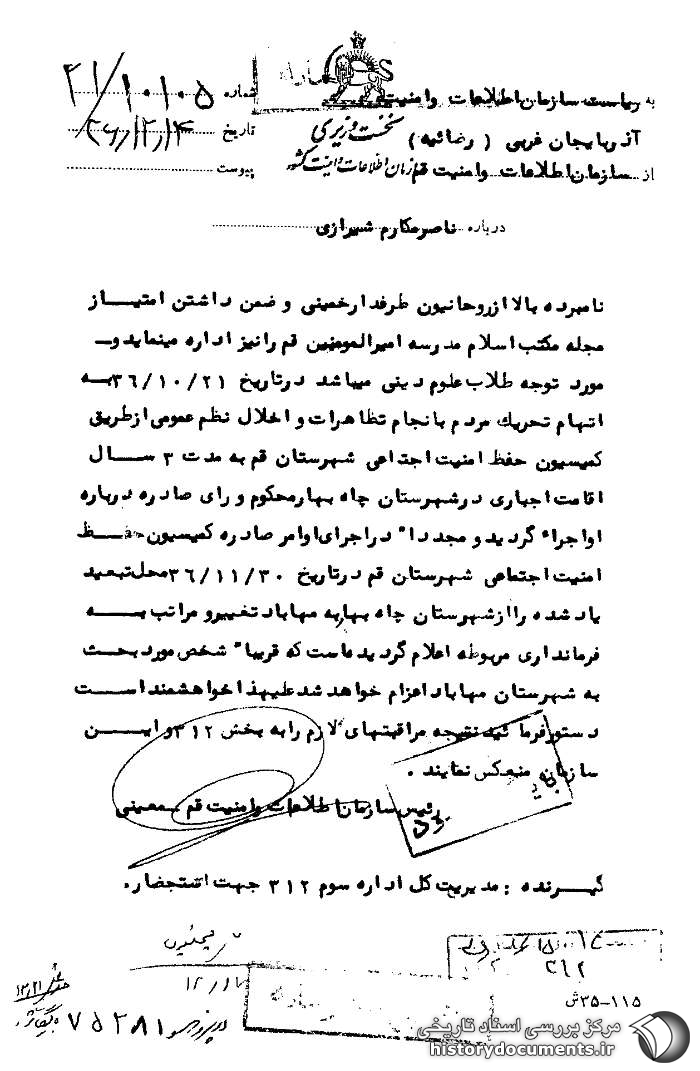 شماره ۲۱/۱۰۱۰۵
به ریاست سازمان اطلاعات و امنیت
آذربایجان غربی (رضائیه)
نخست وزیری
تاریخ
از سازمان اطلاعات و امنیت قم
سازمان اطلاعات و امنیت کشور
پیوست
درباره ناصر مکارم شیرازی
نامبرده بالا از روحانیون طرفدار خمینی و ضمن داشتن امتیاز
مجله مکتب اسلام مدرسه امیرالمومنین قم را نیز اداره مینماید و
مورد توجه طلاب علوم دینی میباشد در تاریخ ۳۶/۱۰/۲۱ به
اتهام تحریک مردم بانجام تظاهرات و اخلال نظم عمومی از طریق
کمیسیون حفظ امنیت اجتماعی شهرستان قم به مدت ۳ سال
اقامت اجباری در شهرستان چاه بهار محکوم و رای صادره درباره
او اجراء گردید و مجدداً در اجرای اوامر صادره کمیسیون حفظ
امنیت اجتماعی شهرستان قم در تاریخ ۳۶/۱۱/۳۰ محل تبعید
یاد شده را از شهرستان چاه بهار به مهاباد تغییر و مراتب به
فرمانداری مربوطه اعلام گردیده است که قریباً شخص مورد بحث
به شهرستان مهاباد اعزام خواهد شد علیهذا خواهشمند است
دستور فرمائید نتیجه مراقبتهای لازم را به بخش ۳۱۲ و این
سازمان منعکس نمایند .
رئیس سازمان اطلاعات و امنیت قم - معینی
گیرنده : مدیریت کل اداره سوم ۳۱۲ جهت استحضار.
۱۲/۱۷
۷۵۲۸۱
۱۱۵-۳۵ش
مرکز بررسی اسناد تاریخی
historydocuments.ir